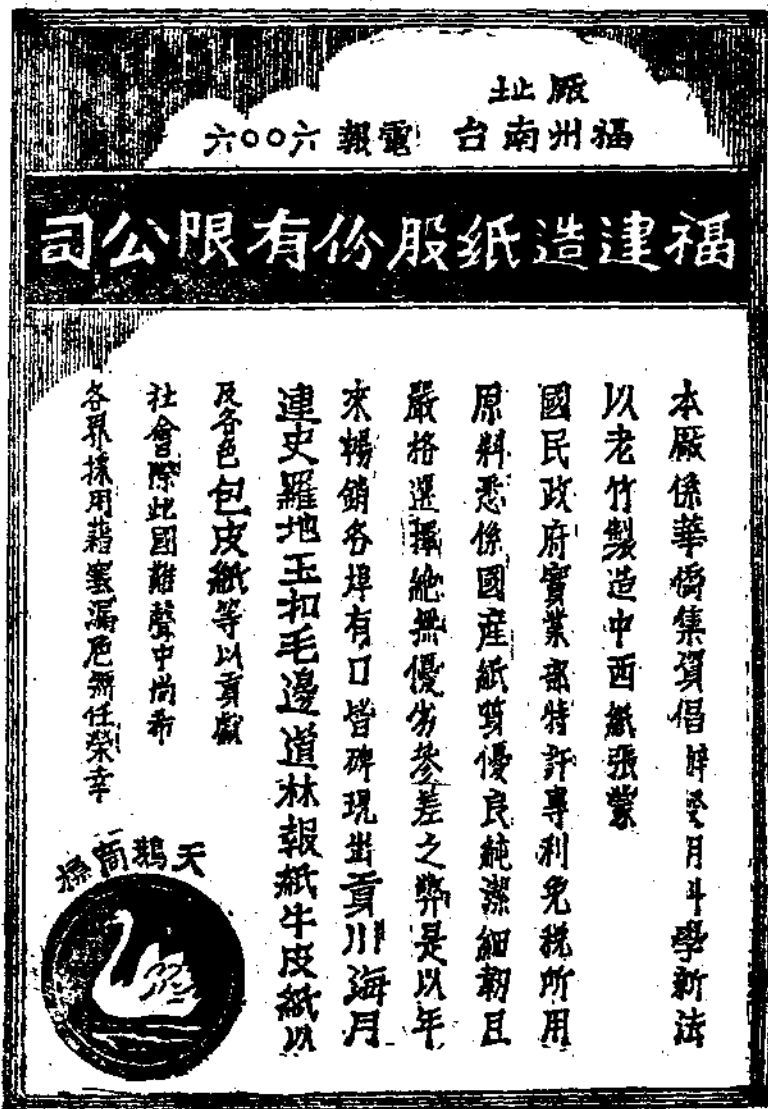 廠址
福州南台 電報六〇〇六
福建造紙股份有限公司
本廠係華僑集資倡辦 用科學新法
以老竹製造中西紙張蒙
國民政府實業部特許專利免稅所用
原料悉係國產紙質優良純潔細韌且
嚴格選擇絕無優劣參差之弊是以年
來暢銷各埠有口皆碑現出貢川海月
連史羅地玉扣毛邊道林報紙牛皮紙以
及各色包皮紙等以貢獻
社會際此國難聲中尚希
各界採用藉塞漏卮無任榮幸
天鵝商標